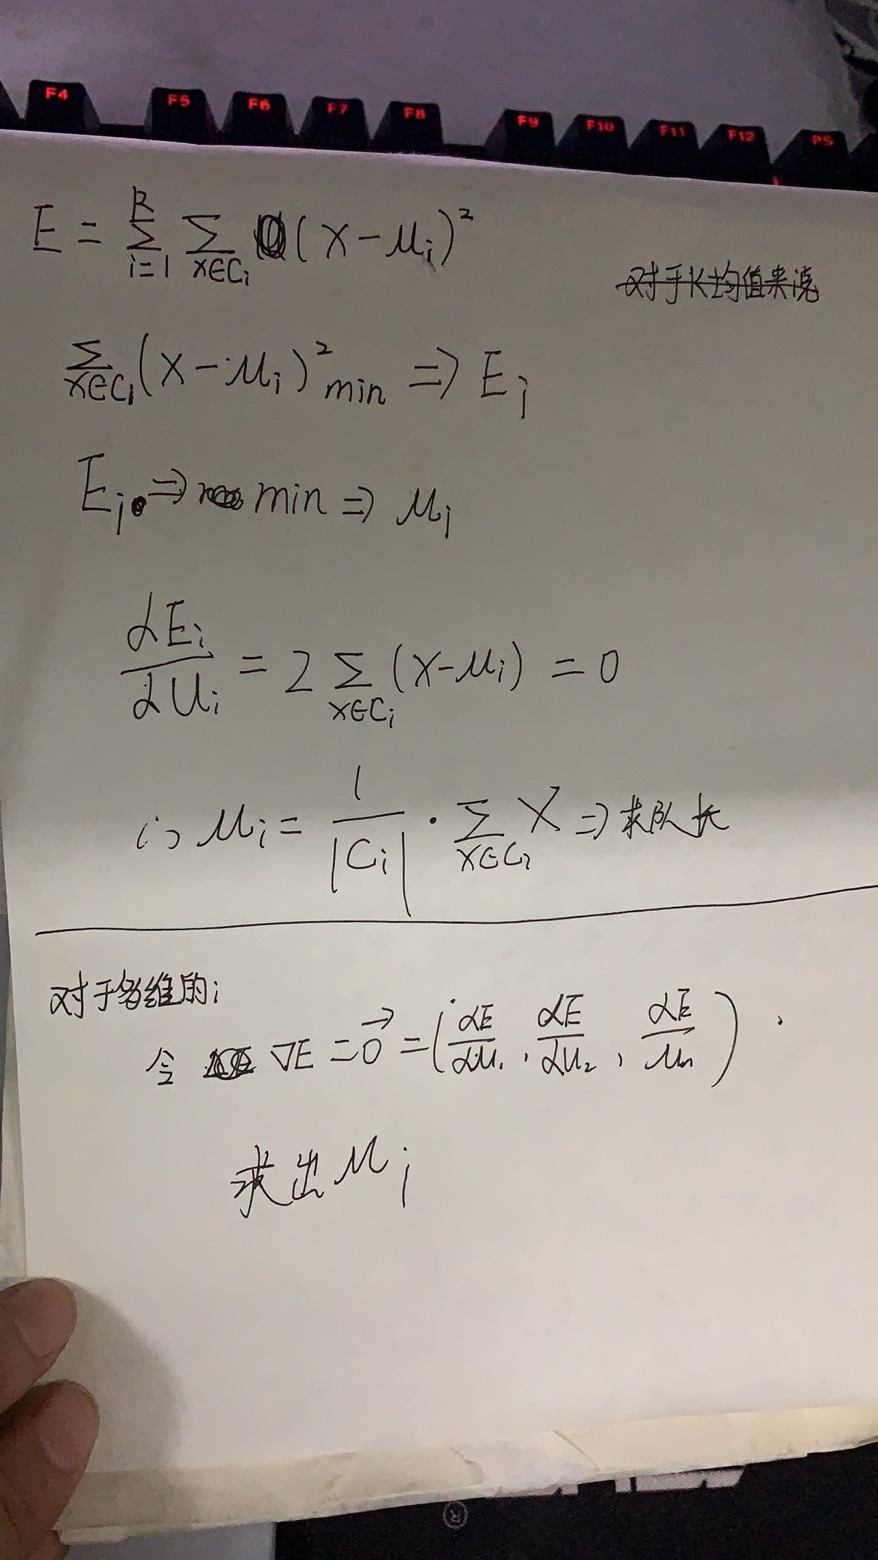 F4 F5 F6 F7 F8 F9 F10 F11 F12 PS
E = Σ_{i=1}^{k} Σ_{x∈C_i} (x-μ_i)²
对于K均值来说
Σ_{x∈C_i} (x-μ_i)² min ⇒ E_i
E_i ⇒ min ⇒ μ_i
dE_i/dU_i = 2 Σ_{x∈C_i} (x-μ_i) = 0
μ_i = 1/|C_i| · Σ_{x∈C_i} X ⇒ 求队长
对于多维的:
令 ∇E = 0⃗ = (dE/dμ_1, dE/dμ_2, dE/μ_n)
求出 μ_i
®